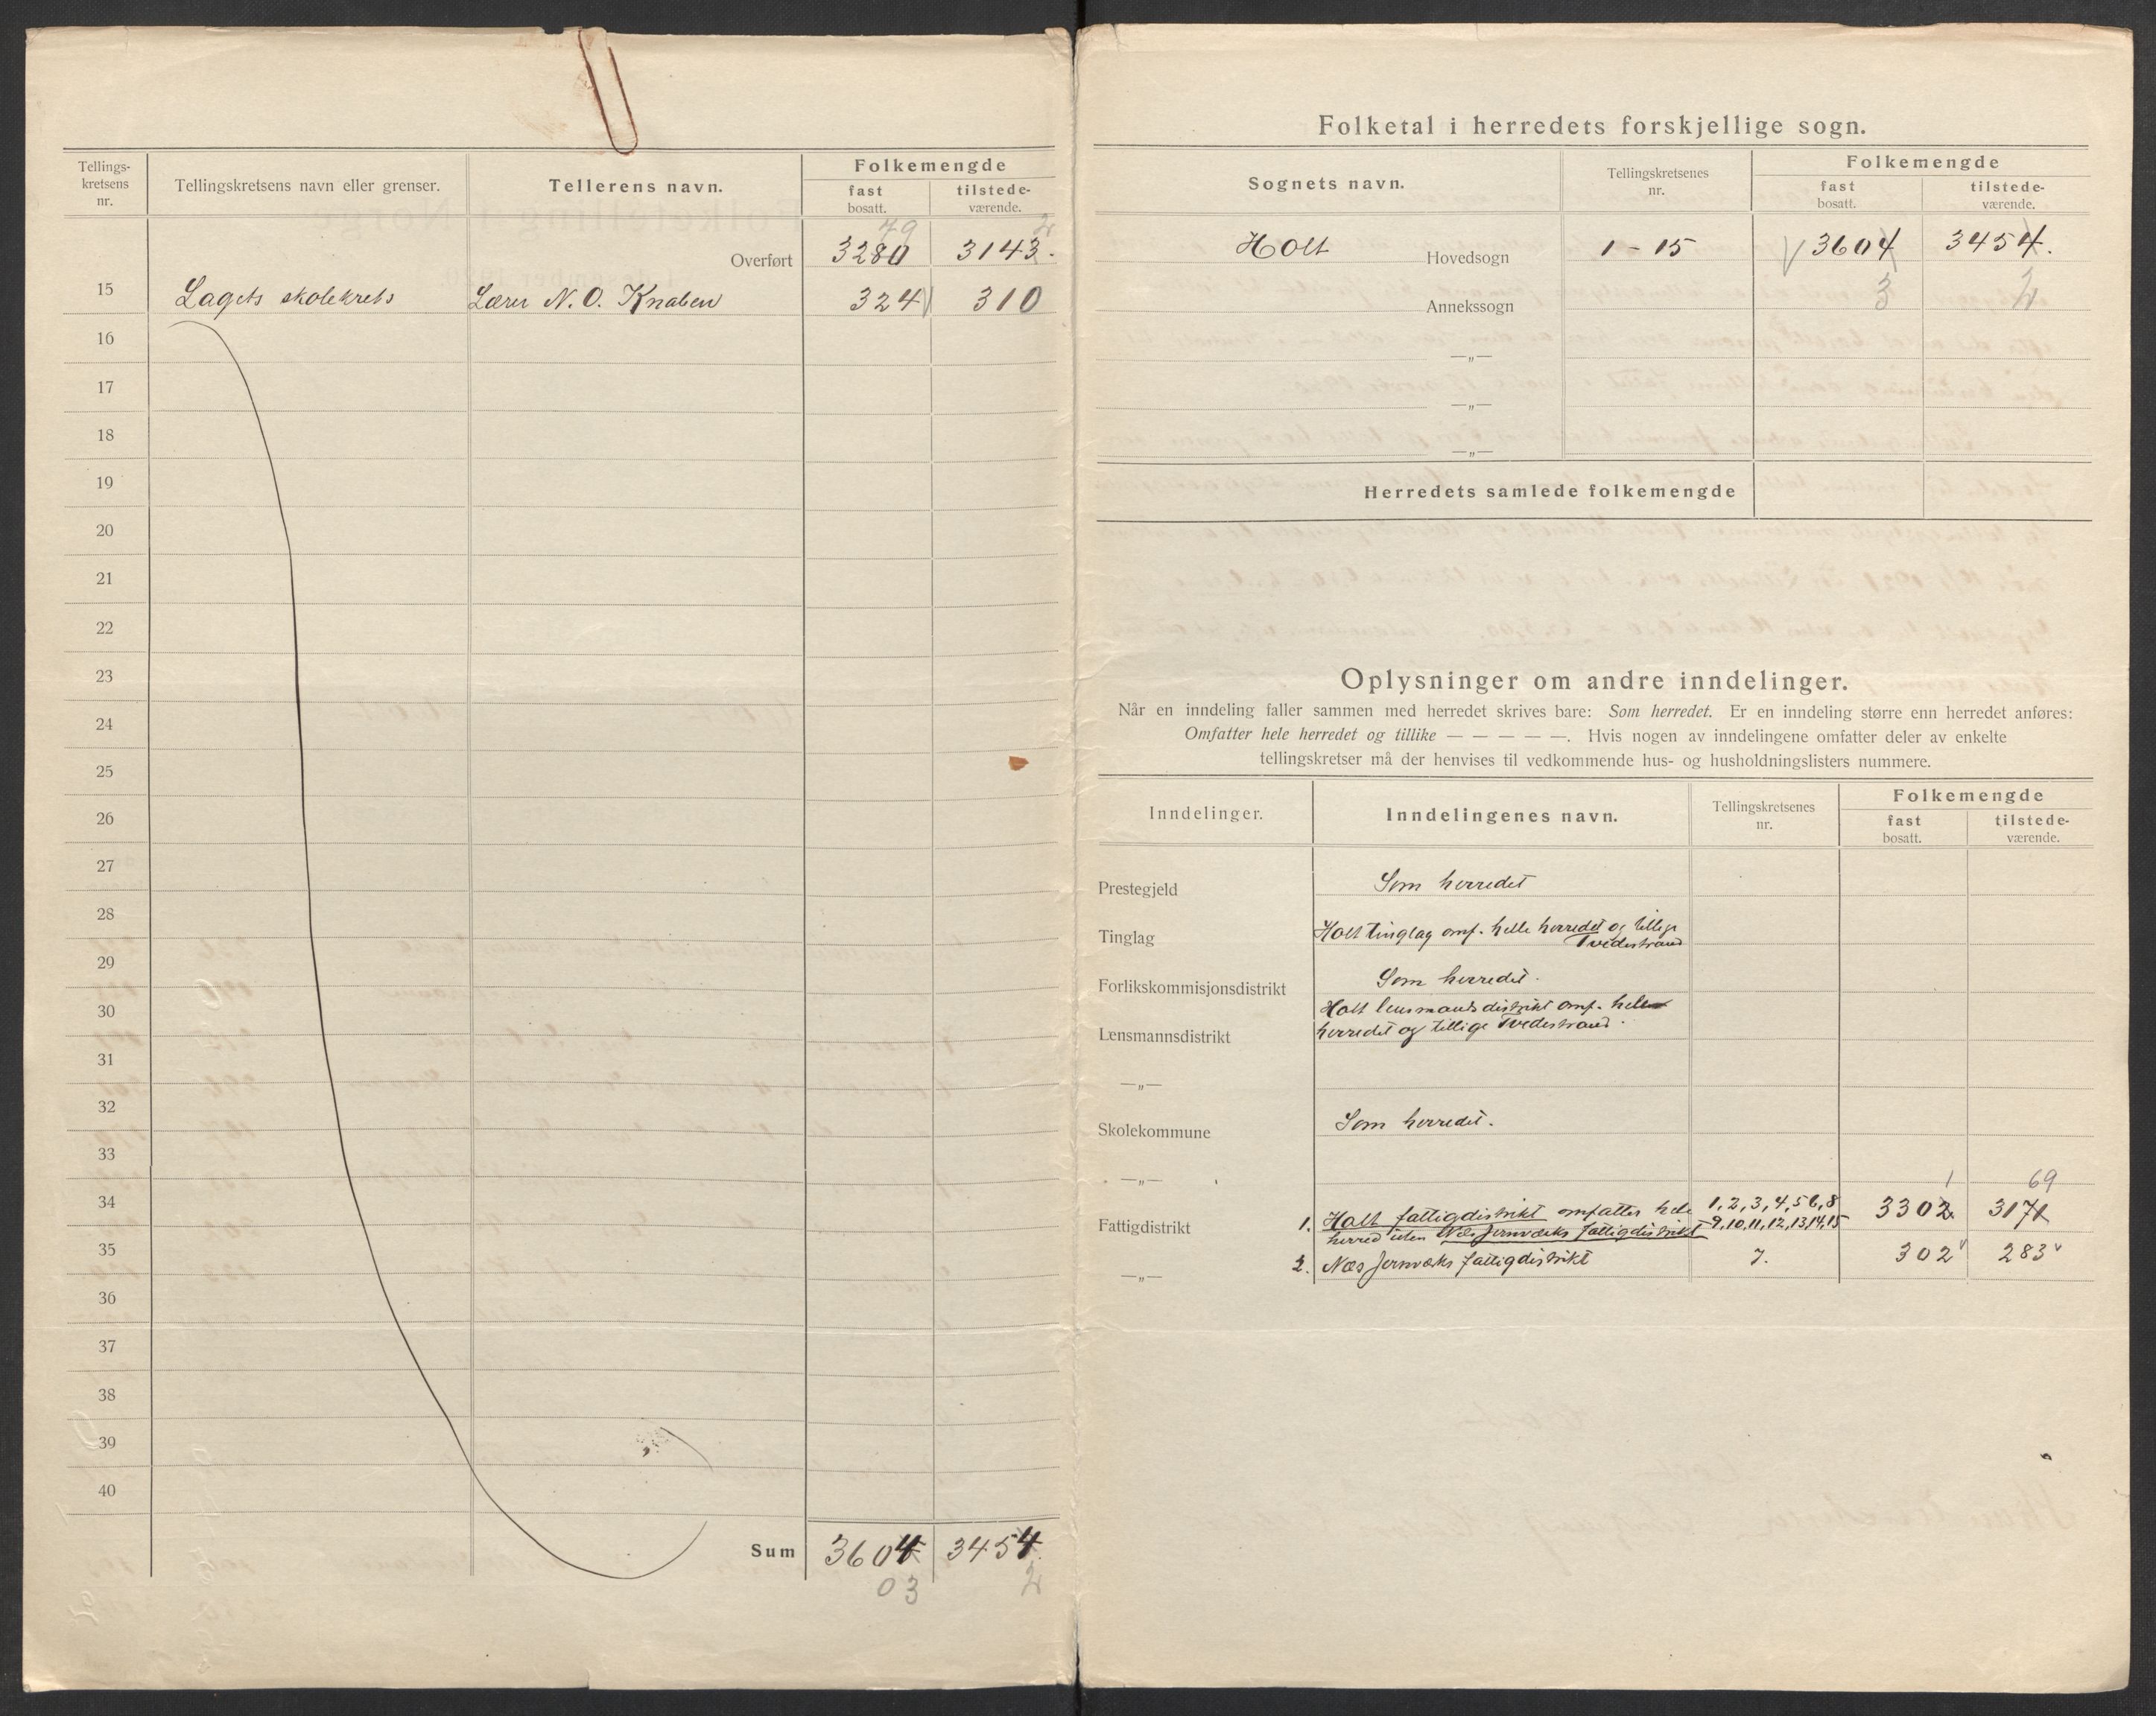 Tellings-
kretsens
nr.
Tellingskretsens navn eller grenser.
Tellerens navn.
Folkemengde
fast
bosatt.
tilstede-
værende.
79 2
Overført 3280 3143.
15 Lagets skolekrets Lærer N. O. Knaben 324 310
16
17
18
19
20
21
22
23
24
25
26
27
28
29
30
31
32
33
34
35
36
37
38
39
40
Sum 3604 3454.
03 2
Folketal i herredets forskjellige sogn.
Sognets navn.
Tellingskretsenes
nr.
Folkemengde
fast
bosatt.
tilstede-
værende.
Holt Hovedsogn 1 - 15 3604 3454.
Annekssogn 3 2
—„—
—„—
—„—
Herredets samlede folkemengde
Oplysninger om andre inndelinger.
Når en inndeling faller sammen med herredet skrives bare: Som herredet. Er en inndeling større enn herredet anføres:
Omfatter hele herredet og tillike — — — — —. Hvis nogen av inndelingene omfatter deler av enkelte
tellingskretser må der henvises til vedkommende hus- og husholdningslisters nummere.
Inndelinger.
Inndelingenes navn.
Tellingskretsenes
nr.
Folkemengde
fast
bosatt.
tilstede-
værende.
Prestegjeld Som herredet
Tinglag Holt tinglag omf. helle herredet og tillige
Tvedestrand
Forlikskommisjonsdistrikt Som herredet.
Holt lensmandsdistrikt omf. hele
Lensmannsdistrikt herredet og tillige Tvedestrand.
—„—
Skolekommune Som herredet.
—„— 1 69
Fattigdistrikt 1. Holt fattigdistrikt omfatter hele 1, 2, 3, 4, 5 6, 8 3302 3171
herred uten Nes Jernværks fattigdistrikt 9, 10, 11, 12, 13, 14, 15
—„— 2. Næs Jernværks fattigdistrikt 7. 302 283